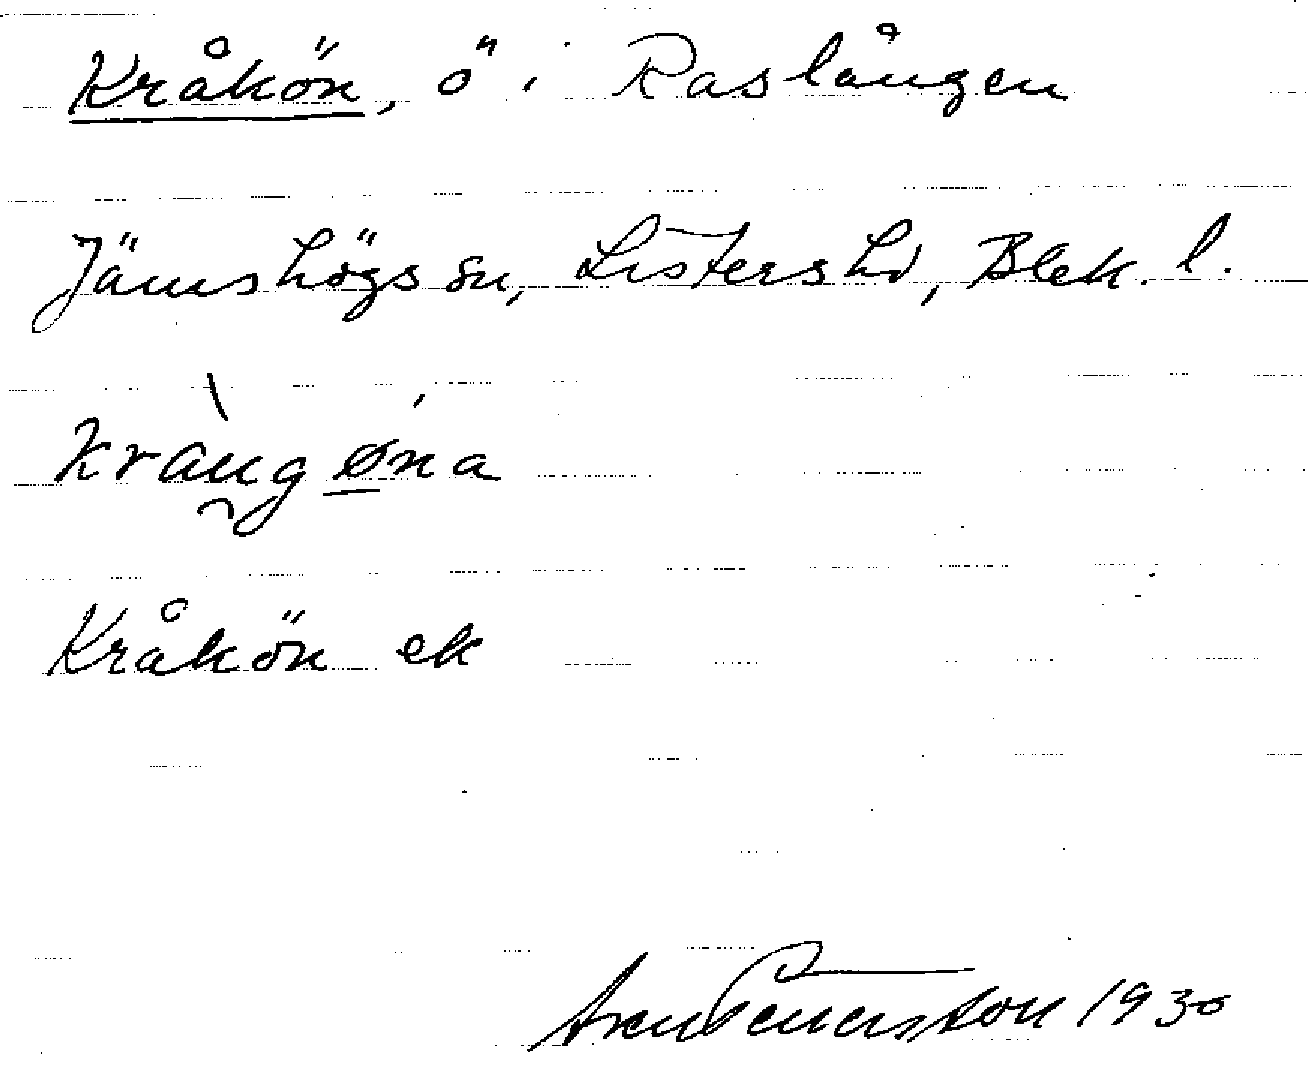 Kråkön, ö i Raslången
Jämshögs sn, Listers hd, Blek. l.
kràu̯gǿ̱na
Kråkön ek
1930